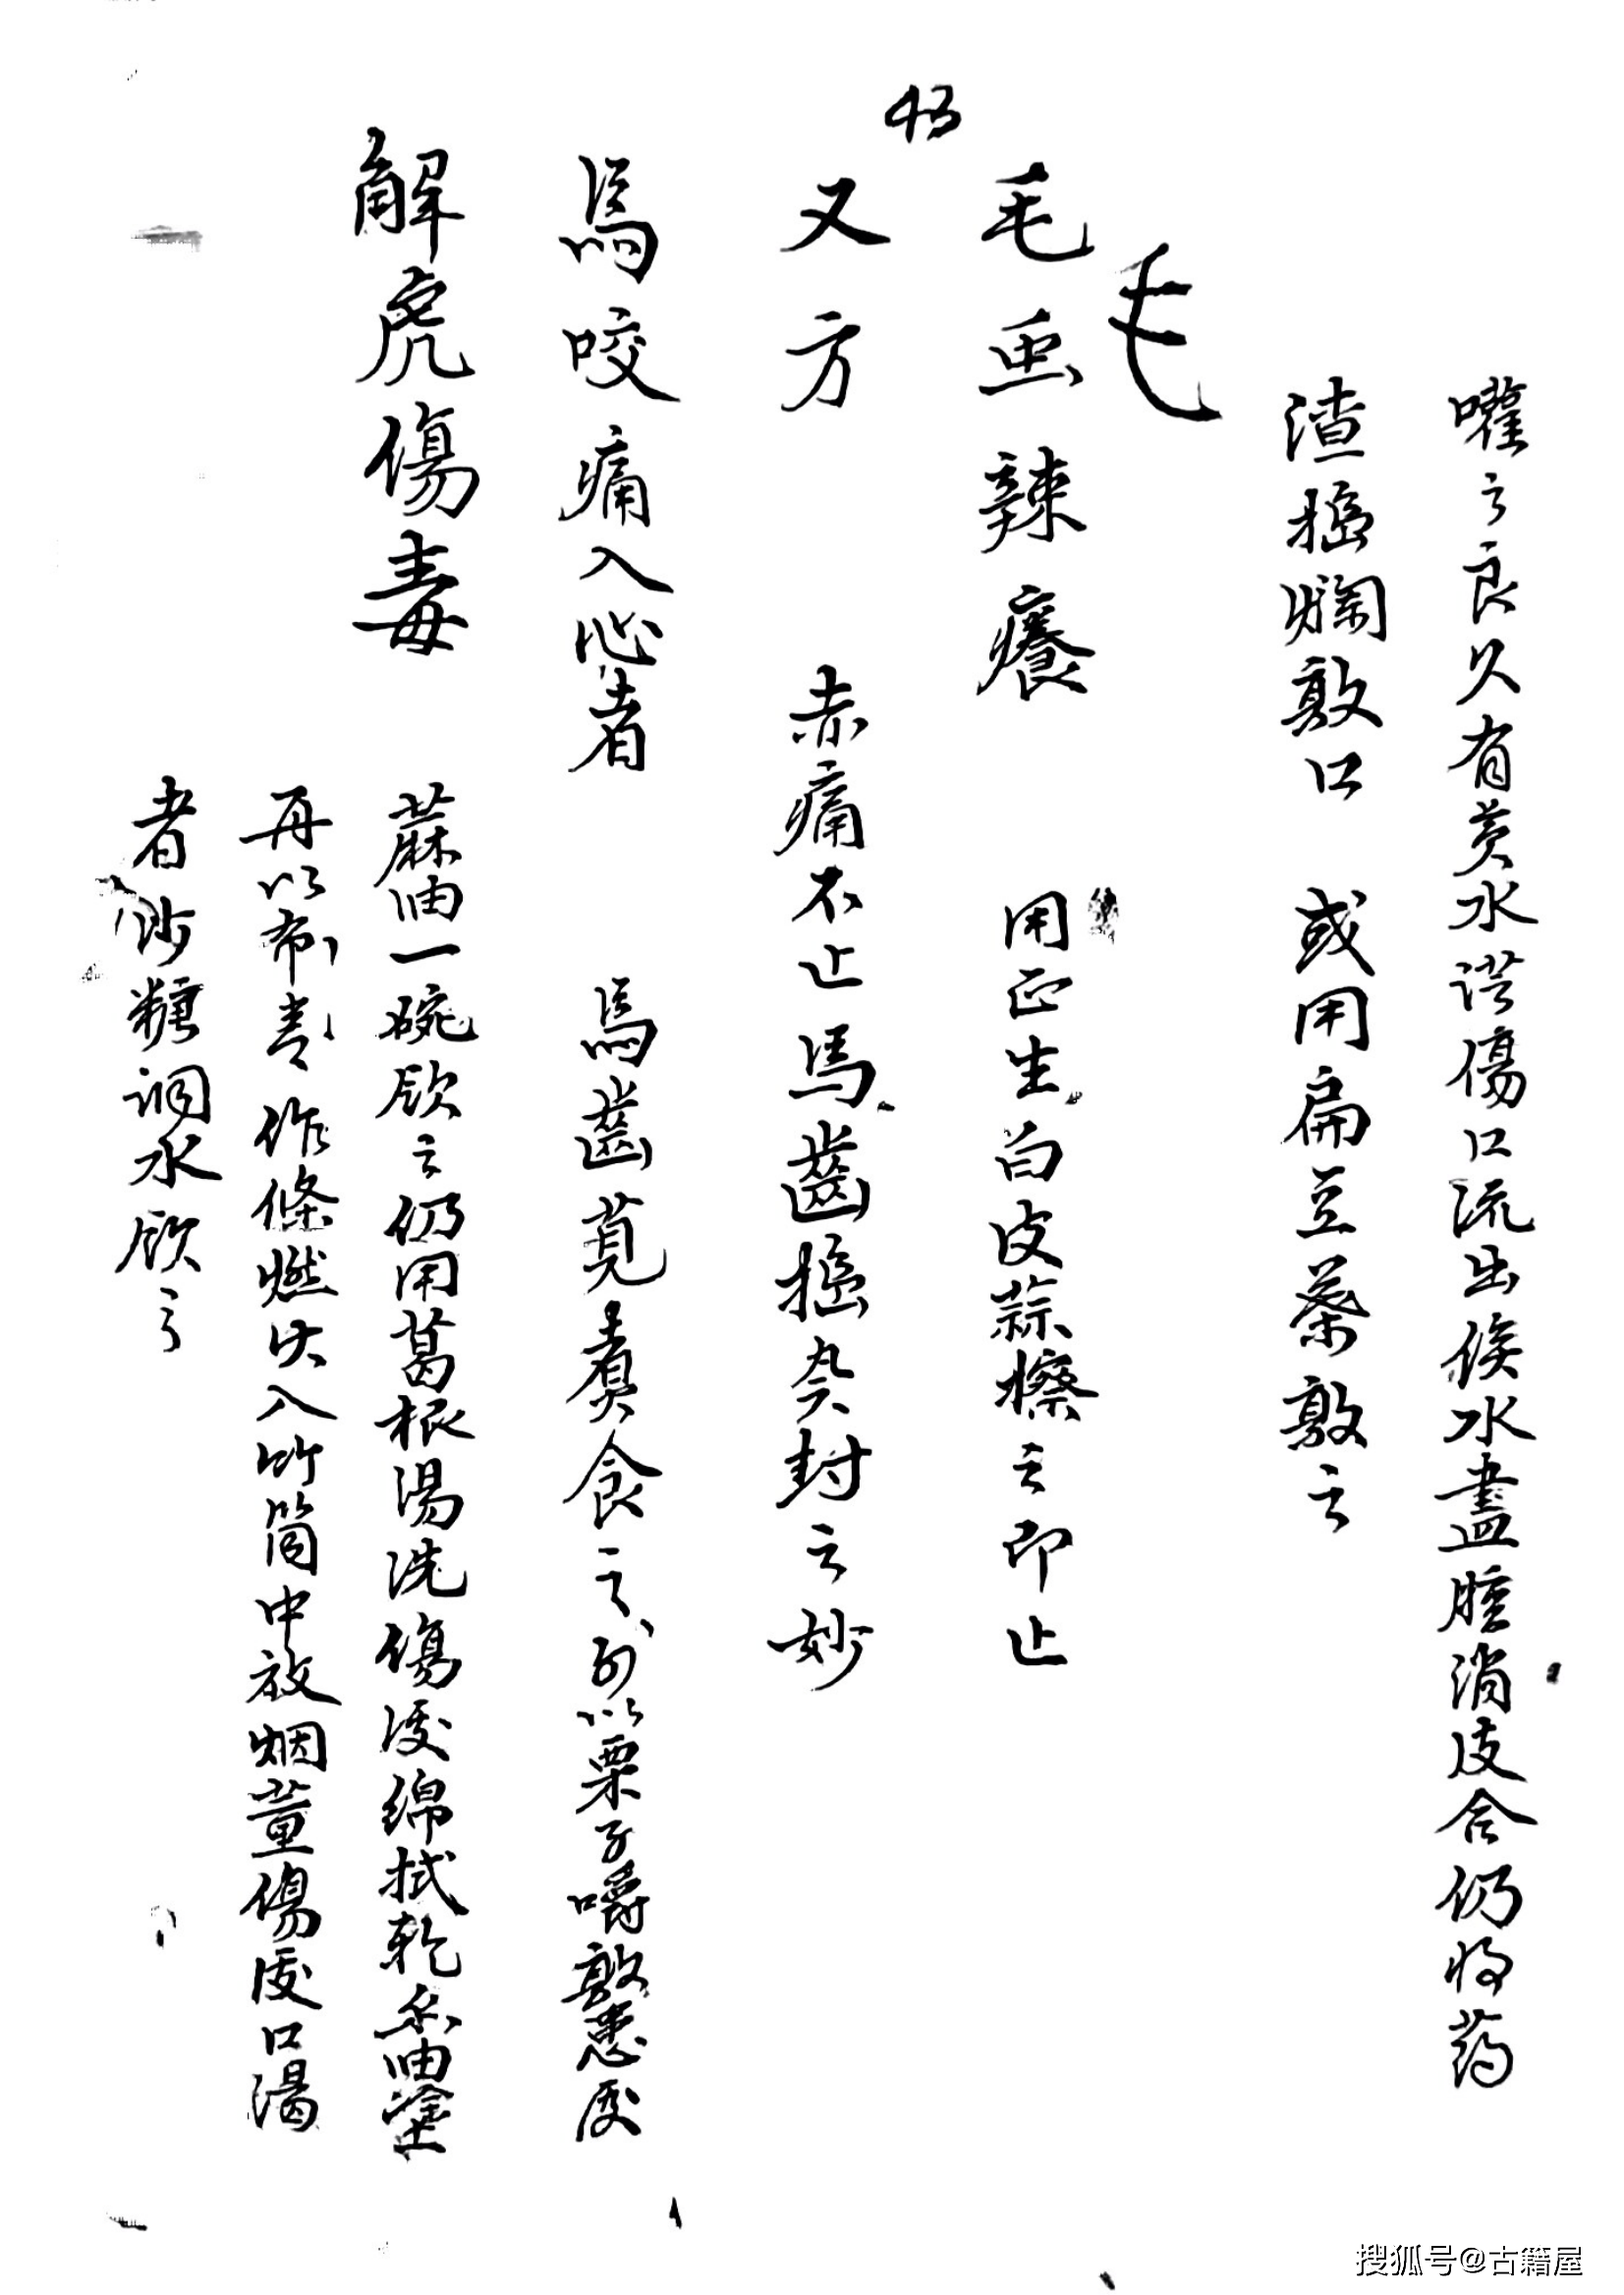 43
嚾之良久有黄水從傷口流出候水盡腫消皮合仍将药
渣搗爛敦口 或用扁豆葉敦之
毛
毛虫辣癢 用正生白皮蒜擦之即止
又方 赤痛不止馬齒搗爛封之妙
馬咬痛入心者 馬齒莧煑食之 以栗子嚼敦患處
解虎傷毒
蔴油一碗飲之仍用葛根湯洗傷處綿拭乾 油塗
再以布 作條燃火入竹筒中放烟薰傷處口渴
者沙糖調水飲之
搜狐号@古籍屋